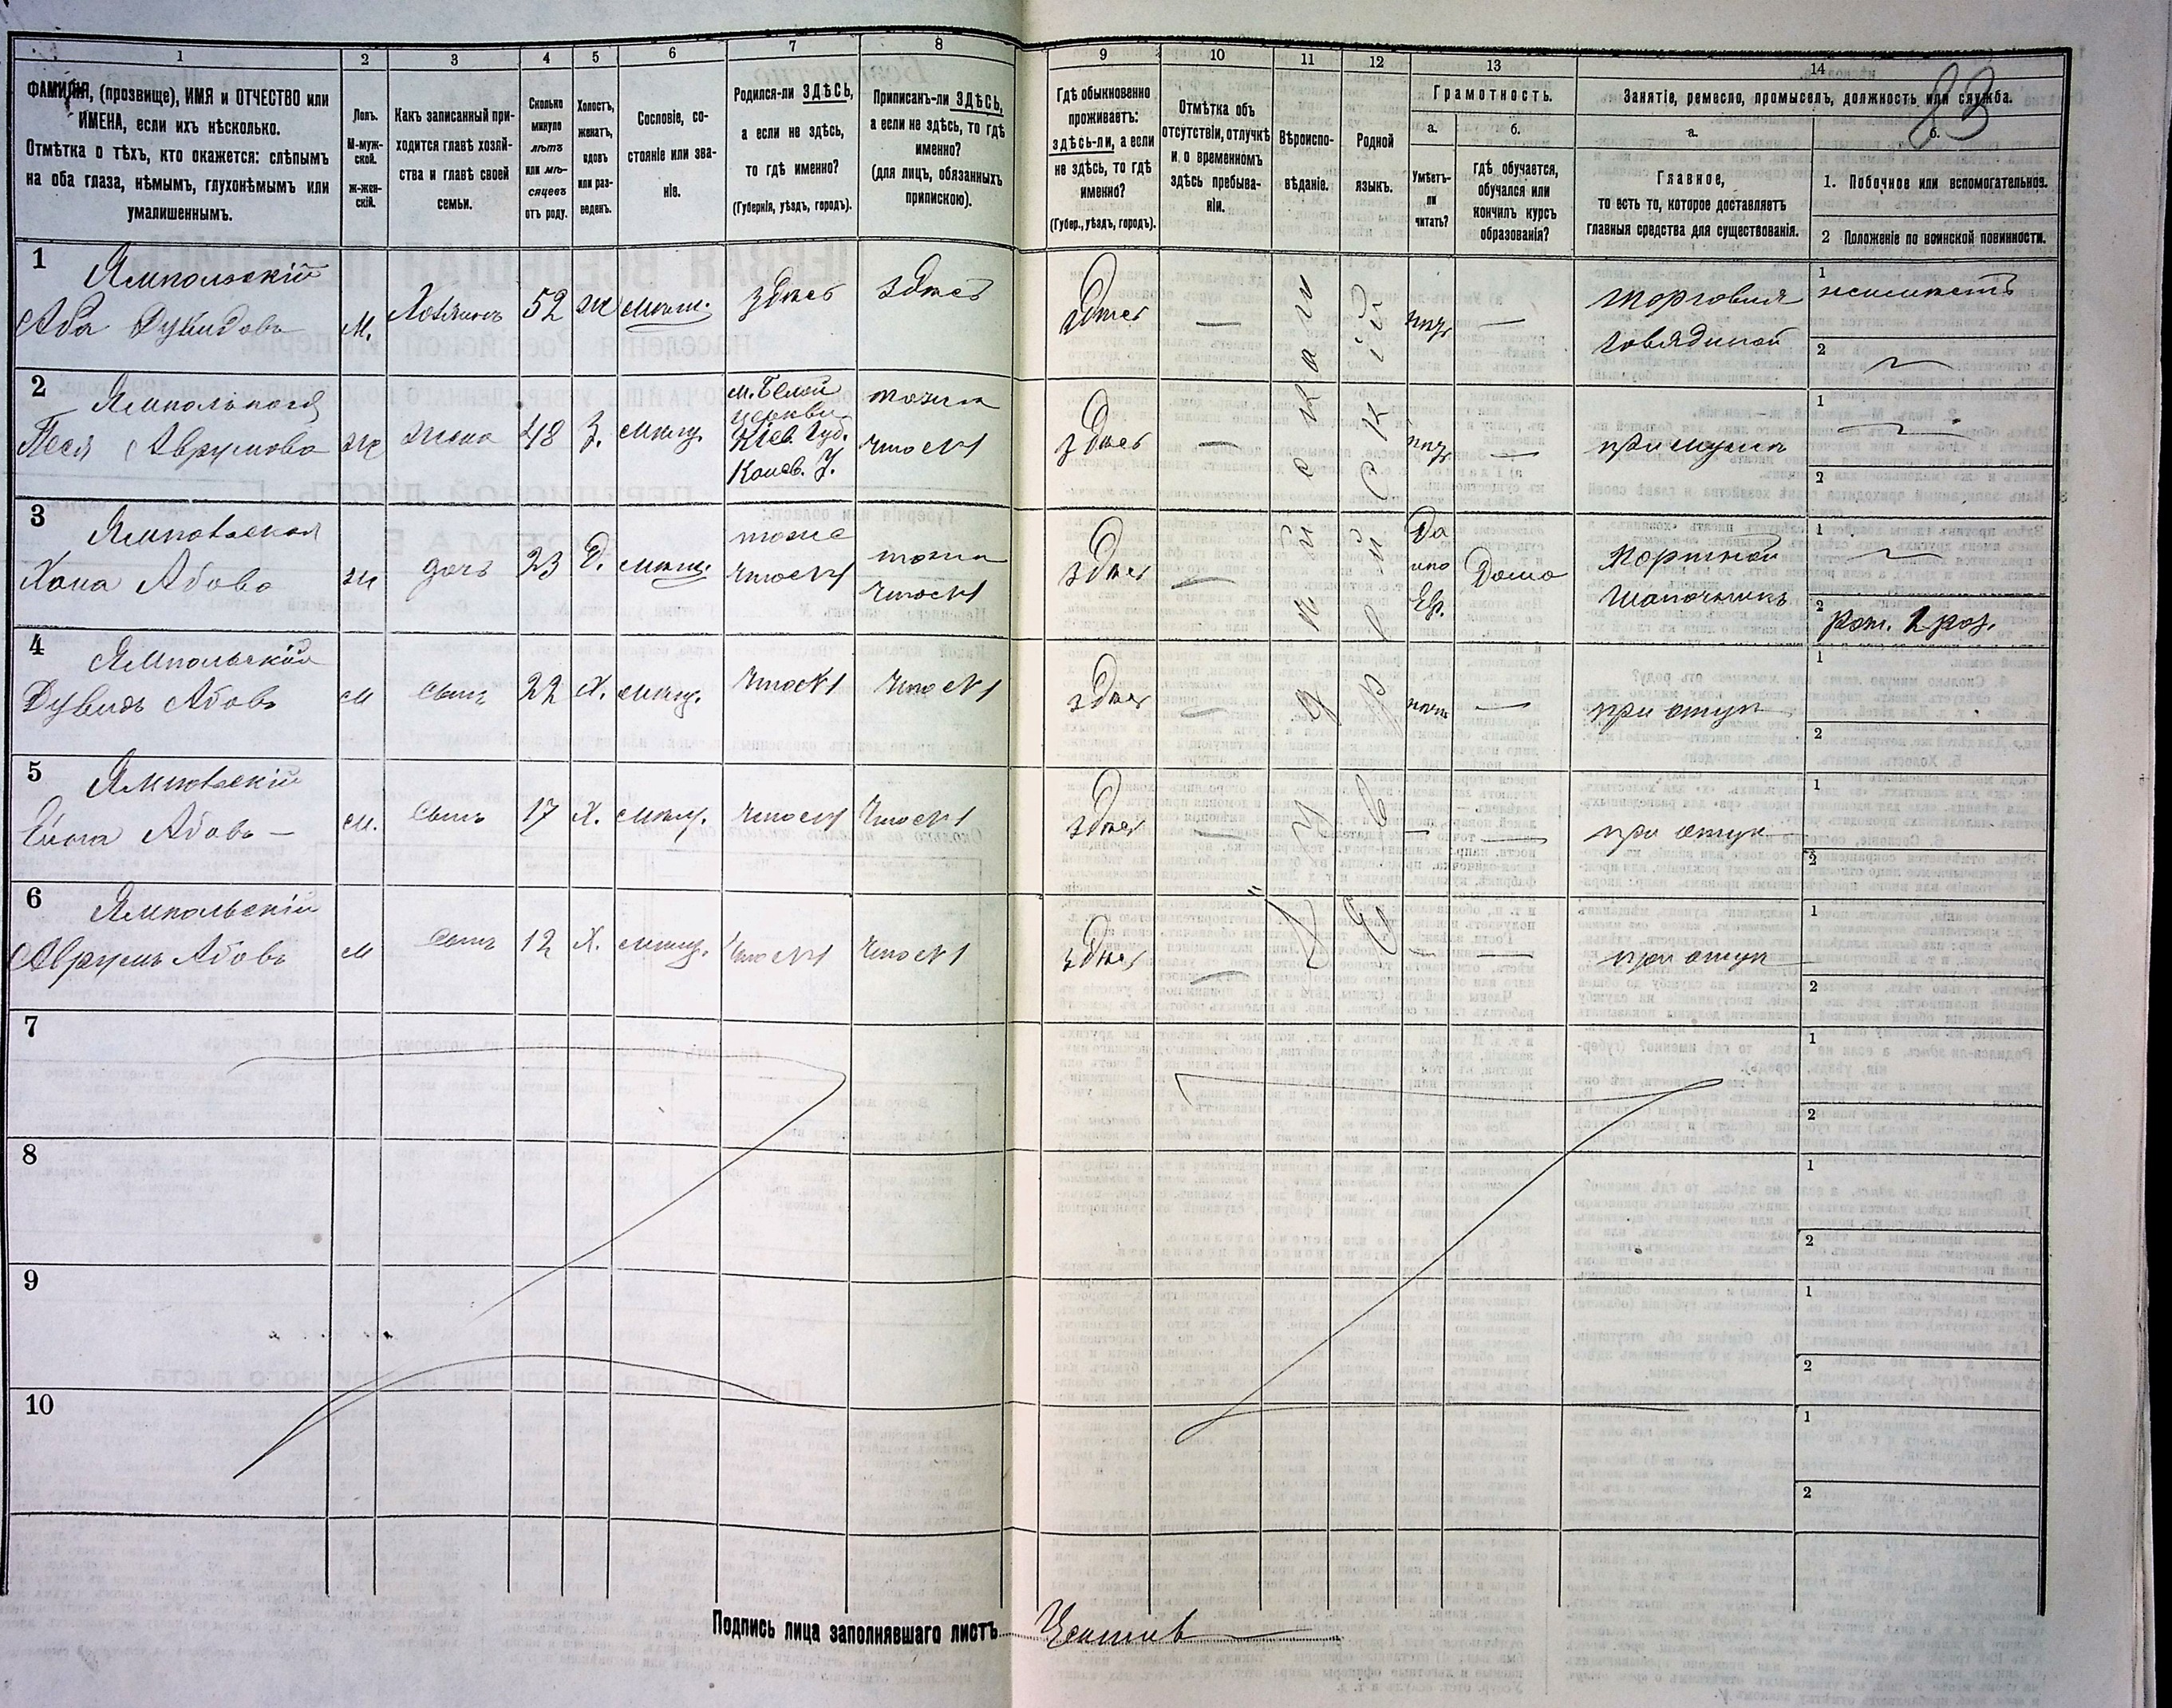 83
1
2
3
4
5
6
7
8
9
10
11
12
13
14
ФАМИЛІЯ, (прозвище), ИМЯ и ОТЧЕСТВО или
ИМЕНА, если ихъ нѣсколько.
Отмѣтка о тѣхъ, кто окажется: слѣпымъ
на оба глаза, нѣмымъ, глухонѣмымъ или
умалишеннымъ.
Полъ.
М-муж-
ской.
ж-жен-
скій.
Какъ записанный при-
ходится главѣ хозяй-
ства и главѣ своей
семьи.
Сколько
минуло
лѣтъ
или мѣ-
сяцевъ
отъ роду.
Холостъ,
женатъ,
вдовъ
или раз-
веденъ.
Сословіе, со-
стояніе или зва-
ніе.
Родился-ли ЗДѢСЬ,
а если не здѣсь,
то гдѣ именно?
(Губернія, уѣздъ, городъ).
Приписанъ-ли ЗДѢСЬ,
а если не здѣсь, то гдѣ
именно?
(для лицъ, обязанныхъ
припискою).
Гдѣ обыкновенно
проживаетъ:
здѣсь-ли, а если
не здѣсь, то гдѣ
именно?
(Губер., уѣздъ, городъ).
Отмѣтка объ
отсутствіи, отлучкѣ
и о временномъ
здѣсь пребыва-
ніи.
Вѣроиспо-
вѣданіе.
Родной
языкъ.
Грамотность.
а.
Умѣетъ-
ли
читать?
б.
гдѣ обучается,
обучался или
кончилъ курсъ
образованія?
Занятіе, ремесло, промыселъ, должность или служба.
а.
Главное,
то есть то, которое доставляетъ
главныя средства для существованія.
б.
1. Побочное или вспомогательное.
2 Положеніе по воинской повинности.
1
Ямпольскій
Аба Дувидовъ
М.
Хозяинъ
52
ж
мѣщ.
здѣсь
здѣсь
здѣсь
—
—
Торговля
говядиной
1
2
2
Ямпольская
Песя Аврумова
ж
жена
48
З.
мѣщ.
м. Белой
церкви
Кіев. Губ.
Канев. У.
тоже
что №1
здѣсь
—
—
при мужѣ
1
2
3
Ямпольская
Хана Абова
ж
дочь
23
Д.
мѣщ.
тоже
что №1
тоже
что №1
здѣсь
—
Да
по
Евр.
Дома
Портной
Шапочникъ
1
2
4
Ямпольскій
Дувидъ Абовъ
м
сынъ
22
Х.
мѣщ.
что №1
что №1
здѣсь
—
—
при отцѣ
1
2
5
Ямпольскій
Абовъ —
м.
сынъ
17
Х.
мѣщ.
что №1
что №1
здѣсь
—
—
—
при отцѣ
1
2
6
Ямпольскій
Аврумъ Абовъ
м
сынъ
12
Х.
мѣщ.
что №1
что №1
здѣсь
—
—
—
при отцѣ
1
2
Іудейскаго
Еврейскій
7
1
2
8
1
2
9
1
2
10
1
2
Подпись лица заполнявшаго листъ